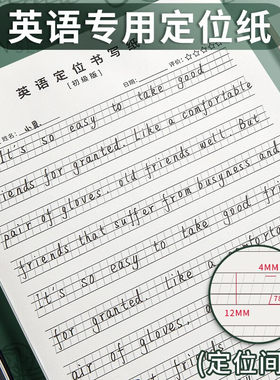 英语专用定位纸
英语定位书写纸
[初级版]
姓名: 小夏 日期: 评价: ☆☆☆
It's so easy to take good
friends for granted. Like a comfortable
pair of gloves, old friends well. But
friends that suffer from busyness and
It's so easy to take good frie
for granted. Like a comforta
air of gloves, o
4MM
12MM
78
(定位间